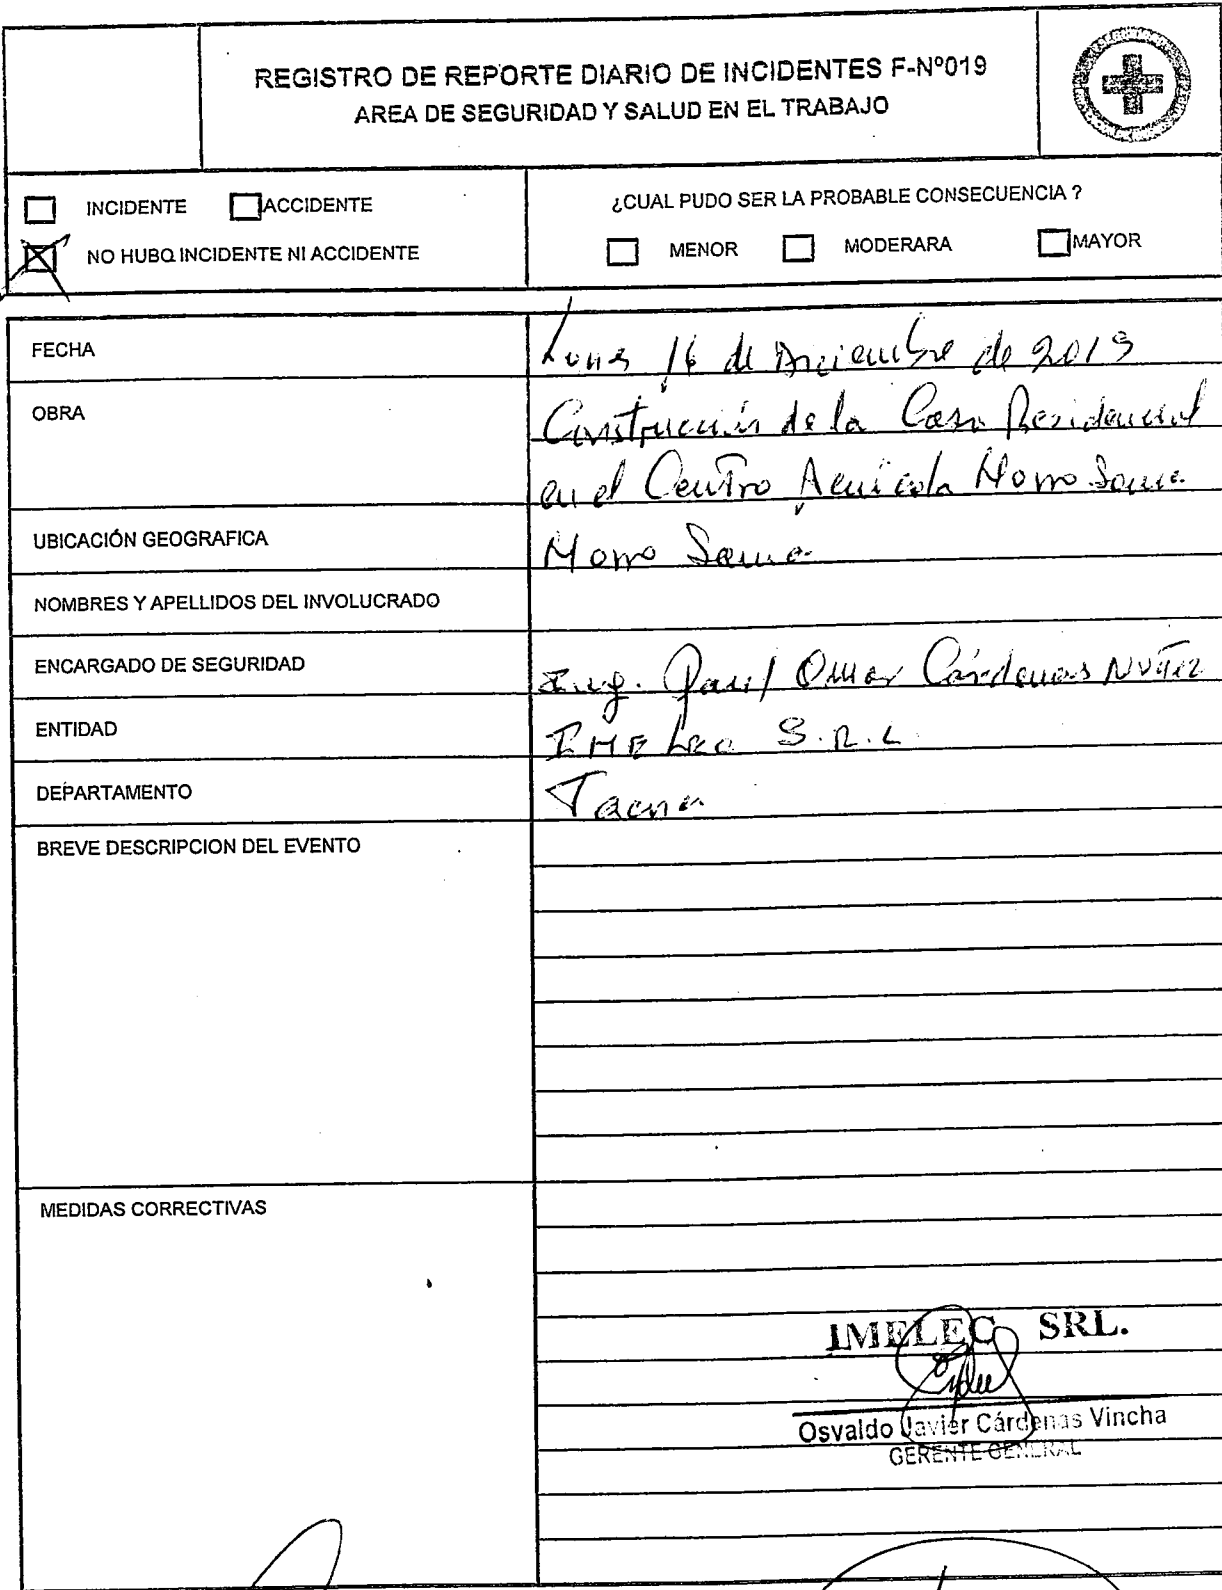 REGISTRO DE REPORTE DIARIO DE INCIDENTES F-Nº019
AREA DE SEGURIDAD Y SALUD EN EL TRABAJO
INCIDENTE ACCIDENTE
NO HUBO INCIDENTE NI ACCIDENTE
¿CUAL PUDO SER LA PROBABLE CONSECUENCIA ?
MENOR MODERARA MAYOR
FECHA
Lunes 16 de Diciembre de 2019
OBRA
Construcción de la Casa Residencial
en el Centro Acuícola Morro Sama
UBICACIÓN GEOGRAFICA
Morro Sama
NOMBRES Y APELLIDOS DEL INVOLUCRADO
ENCARGADO DE SEGURIDAD
Ing. Paul Omar Cárdenas Nuñez
ENTIDAD
IMELEC S.R.L.
DEPARTAMENTO
Tacna
BREVE DESCRIPCION DEL EVENTO
MEDIDAS CORRECTIVAS
IMELEC SRL.
Osvaldo Javier Cárdenas Vincha
GERENTE GENERAL